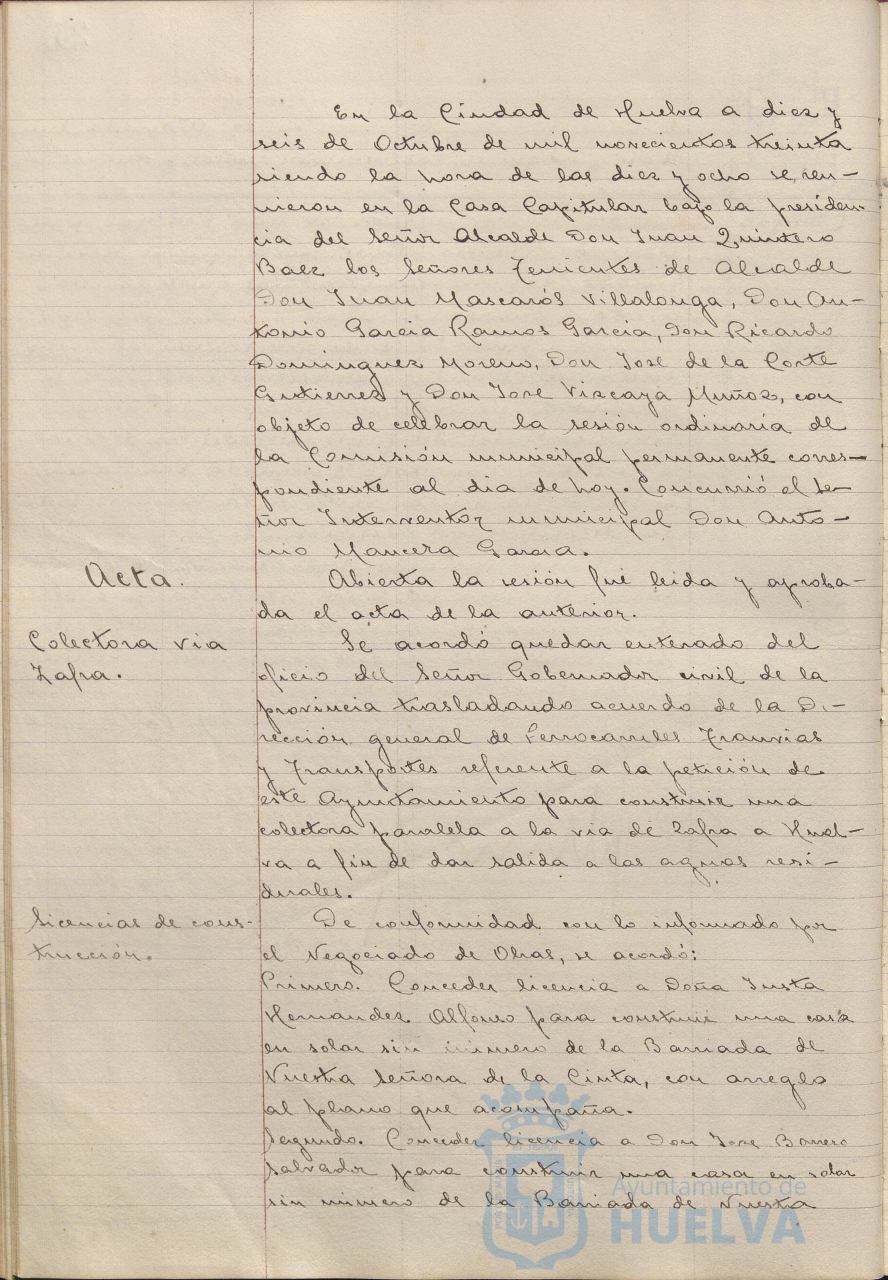 En la Ciudad de Huelva a diez y
seis de Octubre de mil novecientos treinta
siendo la hora de las diez y ocho se reu-
nieron en la Casa Capitular bajo la presiden-
cia del Señor Alcalde Don Juan Quintero
Baez los Señores Tenientes de Alcalde
Don Juan Mascarós Villalonga, Don An-
tonio Garcia Ramos Garcia, Don Ricardo
Dominguez Moreno, Don José de la Corte
Gutierrez y Don José Vizcaya Muñoz, con
objeto de celebrar la sesión ordinaria de
la Comisión municipal permanente corres-
pondiente al dia de hoy. Concurrió el Se-
ñor Interventor municipal Don Anto-
nio Mancera Garcia.
Acta.
Abierta la sesión fué leida y aproba-
da el acta de la anterior.
Colectora via
Zafra.
Se acordó quedar enterado del
oficio del Señor Gobernador civil de la
provincia trasladando acuerdo de la Di-
rección general de Ferrocarriles Tranvias
y Transportes referente a la petición de
este Ayuntamiento para construir una
colectora paralela a la via de Zafra a Huel-
va a fin de dar salida a las aguas resi-
duales.
Licencias de cons-
trucción.
De conformidad con lo informado por
el Negociado de Obras, se acordó:
Primero. Conceder licencia a Doña Justa
Hernandez Alfonso para construir una casa
en solar sin número de la Barriada de
Nuestra Señora de la Cinta, con arreglo
al plano que acompaña.
Segundo. Conceder licencia a Don José Borrero
Salvador para construir una casa en solar
sin número de la Barriada de Nuestra
Ayuntamiento de
HUELVA